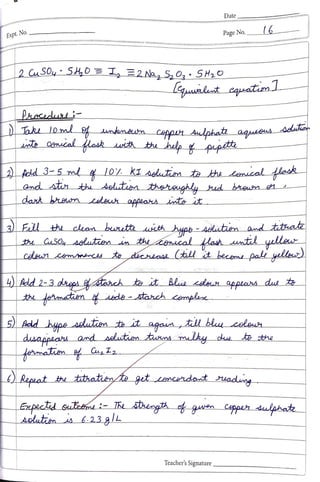 Date
Expt. No.
Page No. 16
2 CuSO4 · 5H2O ≡ I2 ≡ 2 Na2 S2O3 · 5H2O
[Equivalent equation]
Procedure :-
1) Take 10ml of unknown copper sulphate aqueous solution
into conical flask with the help of pipette
2) Add 3-5 ml of 10% KI solution to the conical flask
and stir the solution thoroughly red brown or
dark brown colour appears into it
3) Fill the clean burette with hypo-solution and titrate
the CuSO4 solution in the conical flask until yellow
colour commences to decrease (till it become pale yellow)
4) Add 2-3 drops of starch to it Blue colour appears due to
the formation of iodo-starch complex
5) Add hypo solution to it again, till blue colour
disappears and solution turns milky due to the
formation of Cu2I2
6) Repeat the titration to get concordant reading
Expected outcome :- The strength of given copper sulphate
solution is 6.23 g/L
Teacher's Signature